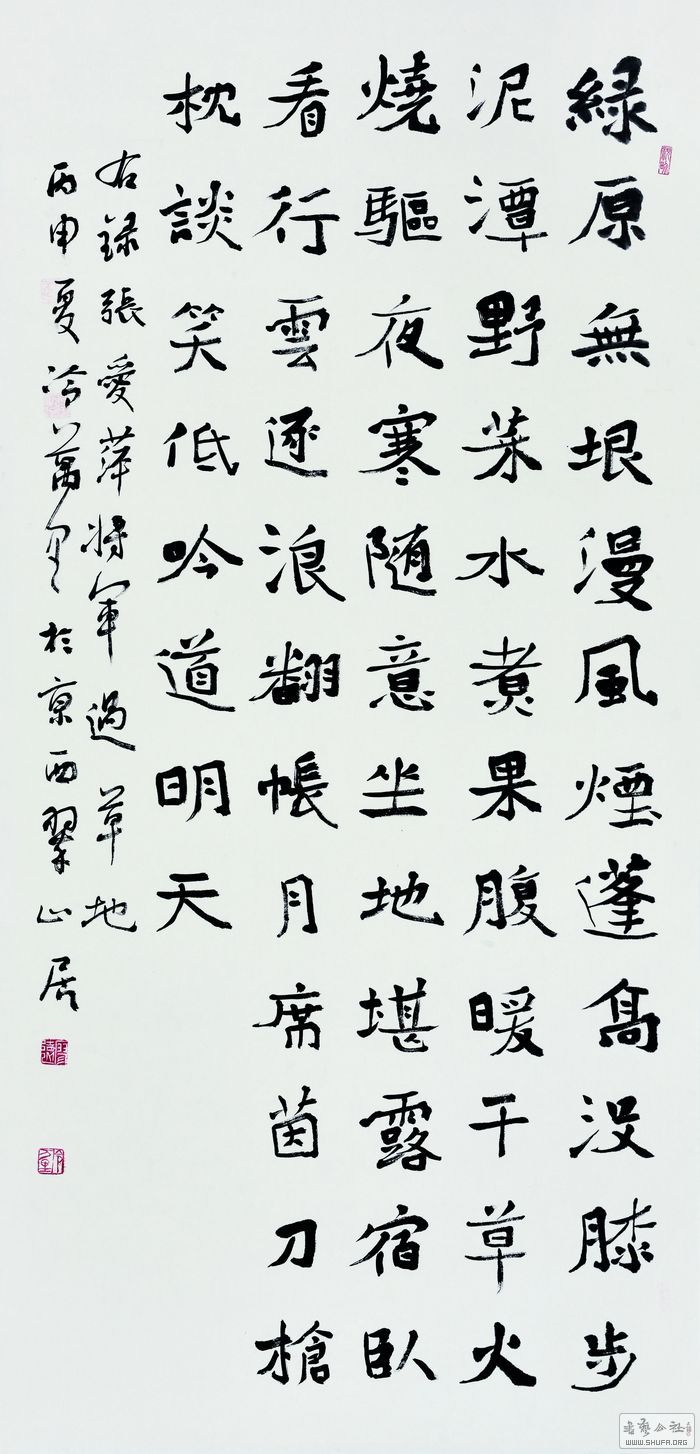 綠原無垠漫風煙蓬高没膝步
泥潭野菜水煮果腹暖干草火
燒驅夜寒随意坐地堪露宿臥
看行雲逐浪翻帳月席茵刀槍
枕談笑低吟道明天
右録張愛萍將軍過草地
丙申夏冷萬里於京西翠山居
书艺公社
WWW.SHUFA.ORG